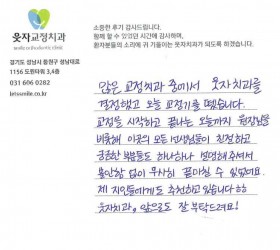 소중한 후기 감사드립니다.
함께 할 수 있었던 시간에 감사하며,
환자분들의 소리에 귀 기울이는 웃자치과가 되도록 하겠습니다.
웃자교정치과
경기도 성남시 중원구 성남대로
1156 도원타워 3,4층
031 606 0282
letssmile.co.kr
많은 교정치과 중에서 웃자치과를
결정했고 오늘 교정기를 뗐습니다.
교정을 시작하고 끝나는 오늘까지 원장님을
비롯해 이곳의 모든 선생님들이 친절하고
궁금한 부분들도 하나하나 설명해주셔서
불안함 없이 무사히 끝마칠 수 있었어요.
제 지인들에게도 추천하고 있습니다 ㅎㅎ
웃자치과 앞으로도 잘 부탁드려요!